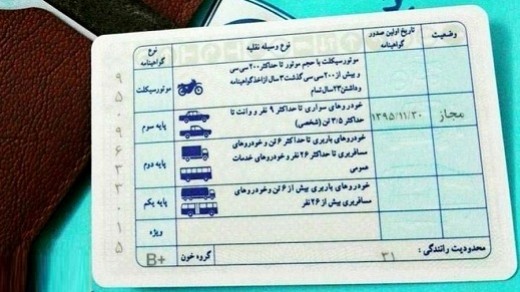 وضعیت
تاریخ اولین صدور
گواهینامه
نوع وسیله نقلیه
نوع
گواهینامه
موتورسیکلت با حجم موتور تا حداکثر ۲۰۰ سی سی
و بیش از ۲۰۰ سی سی گذشت ۳ سال از اخذ گواهینامه
و داشتن ۲۳ سال تمام
موتورسیکلت
مجاز
۱۳۹۵/۱۱/۳۰
خودروهای سواری تا حداکثر ۹ نفر و وانت تا
حداکثر ۳/۵ تن (شخصی)
پایه سوم
خودروهای باربری تا حداکثر ۶ تن و خودروهای
مسافربری تا حداکثر ۲۶ نفر و خودروهای خدمات
عمومی
پایه دوم
خودروهای باربری بیش از ۶ تن و خودروهای
مسافربری بیش از ۲۶ نفر
پایه یکم
ویژه
محدودیت رانندگی :
۳۱
گروه خون
B+